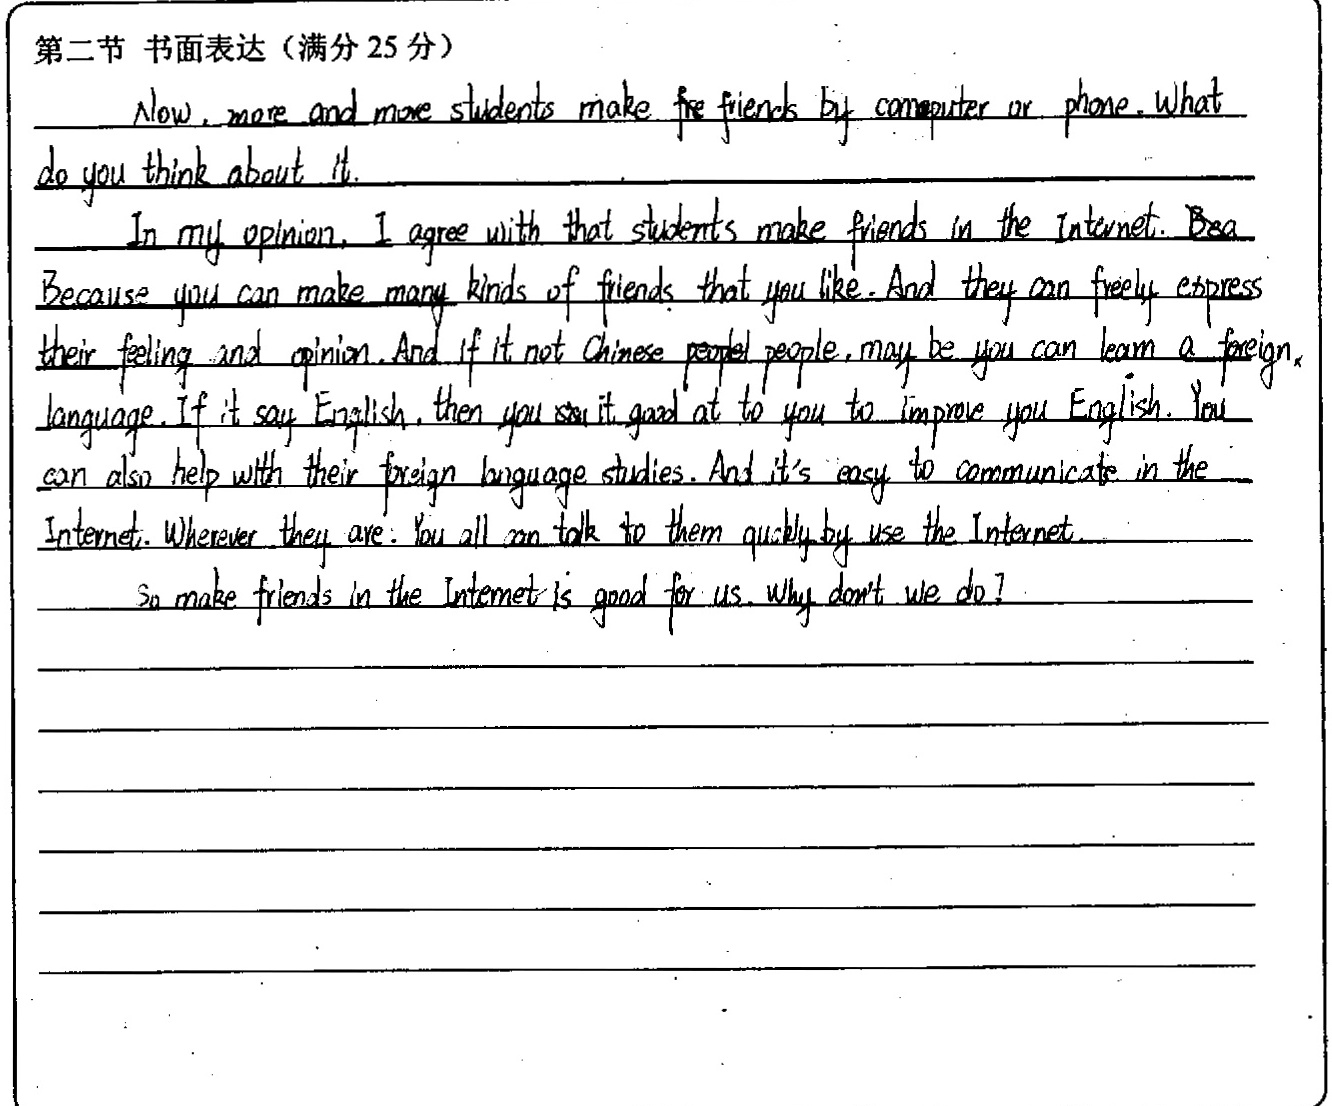 第二节 书面表达（满分 25 分）
Now, more and more students make friends by computer or phone. What
do you think about it.
In my opinion, I agree with that students make friends in the Internet. Bea
Because you can make many kinds of friends that you like. And they can freely express
their feeling and opinion. And if it not Chinese people, may be you can learn a foreign
language. If it say English, then you it good at to you to improve you English. You
can also help with their foreign language studies. And it's easy to communicate in the
Internet. Wherever they are. You all can talk to them quckly by use the Internet.
So make friends in the Internet is good for us. Why don't we do?